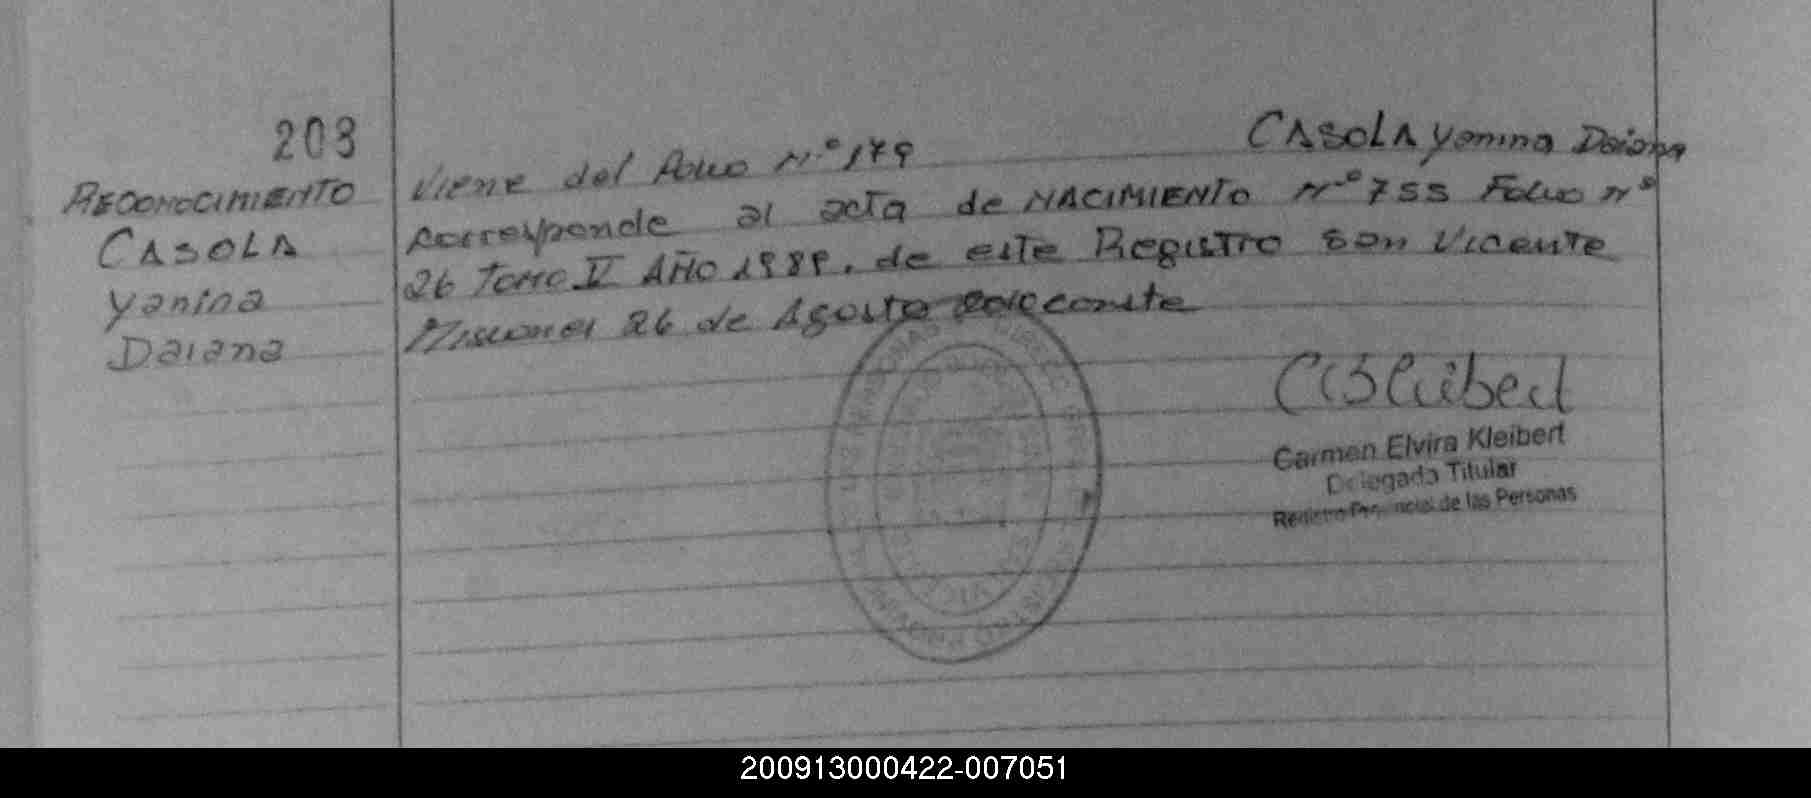 203
RECONOCIMIENTO
CASOLA
Yanina
Daiana
Viene del Folio N.º 179 CASOLA Yanina Daiana
corresponde al acta de NACIMIENTO Nº 755 Folio nº
26 Tomo V Año 1989. de este Registro San Vicente
Misiones 26 de Agosto conste
Carmen Elvira Kleibert
Delegada Titular
Registro Provincial de las Personas
200913000422-007051